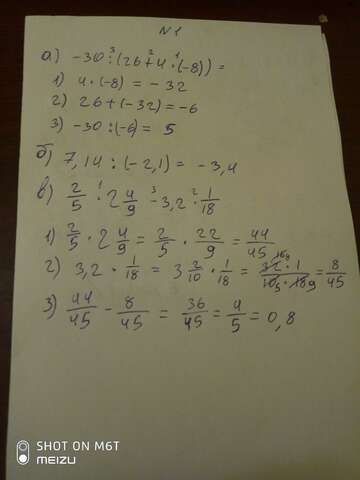 №1
а) -30 : (26 + 4 · (-8)) =
1) 4 · (-8) = -32
2) 26 + (-32) = -6
3) -30 : (-6) = 5
б) 7,14 : (-2,1) = -3,4
в) 2/5 · 2 4/9 - 3,2 · 1/18
1) 2/5 · 2 4/9 = 2/5 · 22/9 = 44/45
2) 3,2 · 1/18 = 3 2/10 · 1/18 = 32 · 1/10 · 18 = 8/45
3) 44/45 - 8/45 = 36/45 = 4/5 = 0,8
SHOT ON M6T
MEIZU